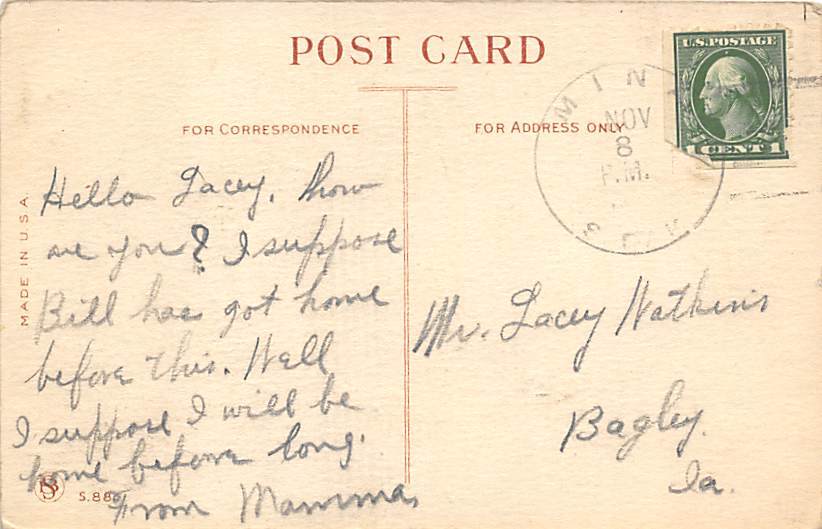 POST CARD
FOR CORRESPONDENCE
FOR ADDRESS ONLY
U.S. POSTAGE
1 CENT 1
MIN
NOV
8
P.M.
MADE IN U.S.A.
Hello Lacey, how
are you? I suppose
Bill has got home
before this. Well
I suppose I will be
home before long.
From Mamma
Mr. Lacey Watkins
Bagley.
Ia.
S.88